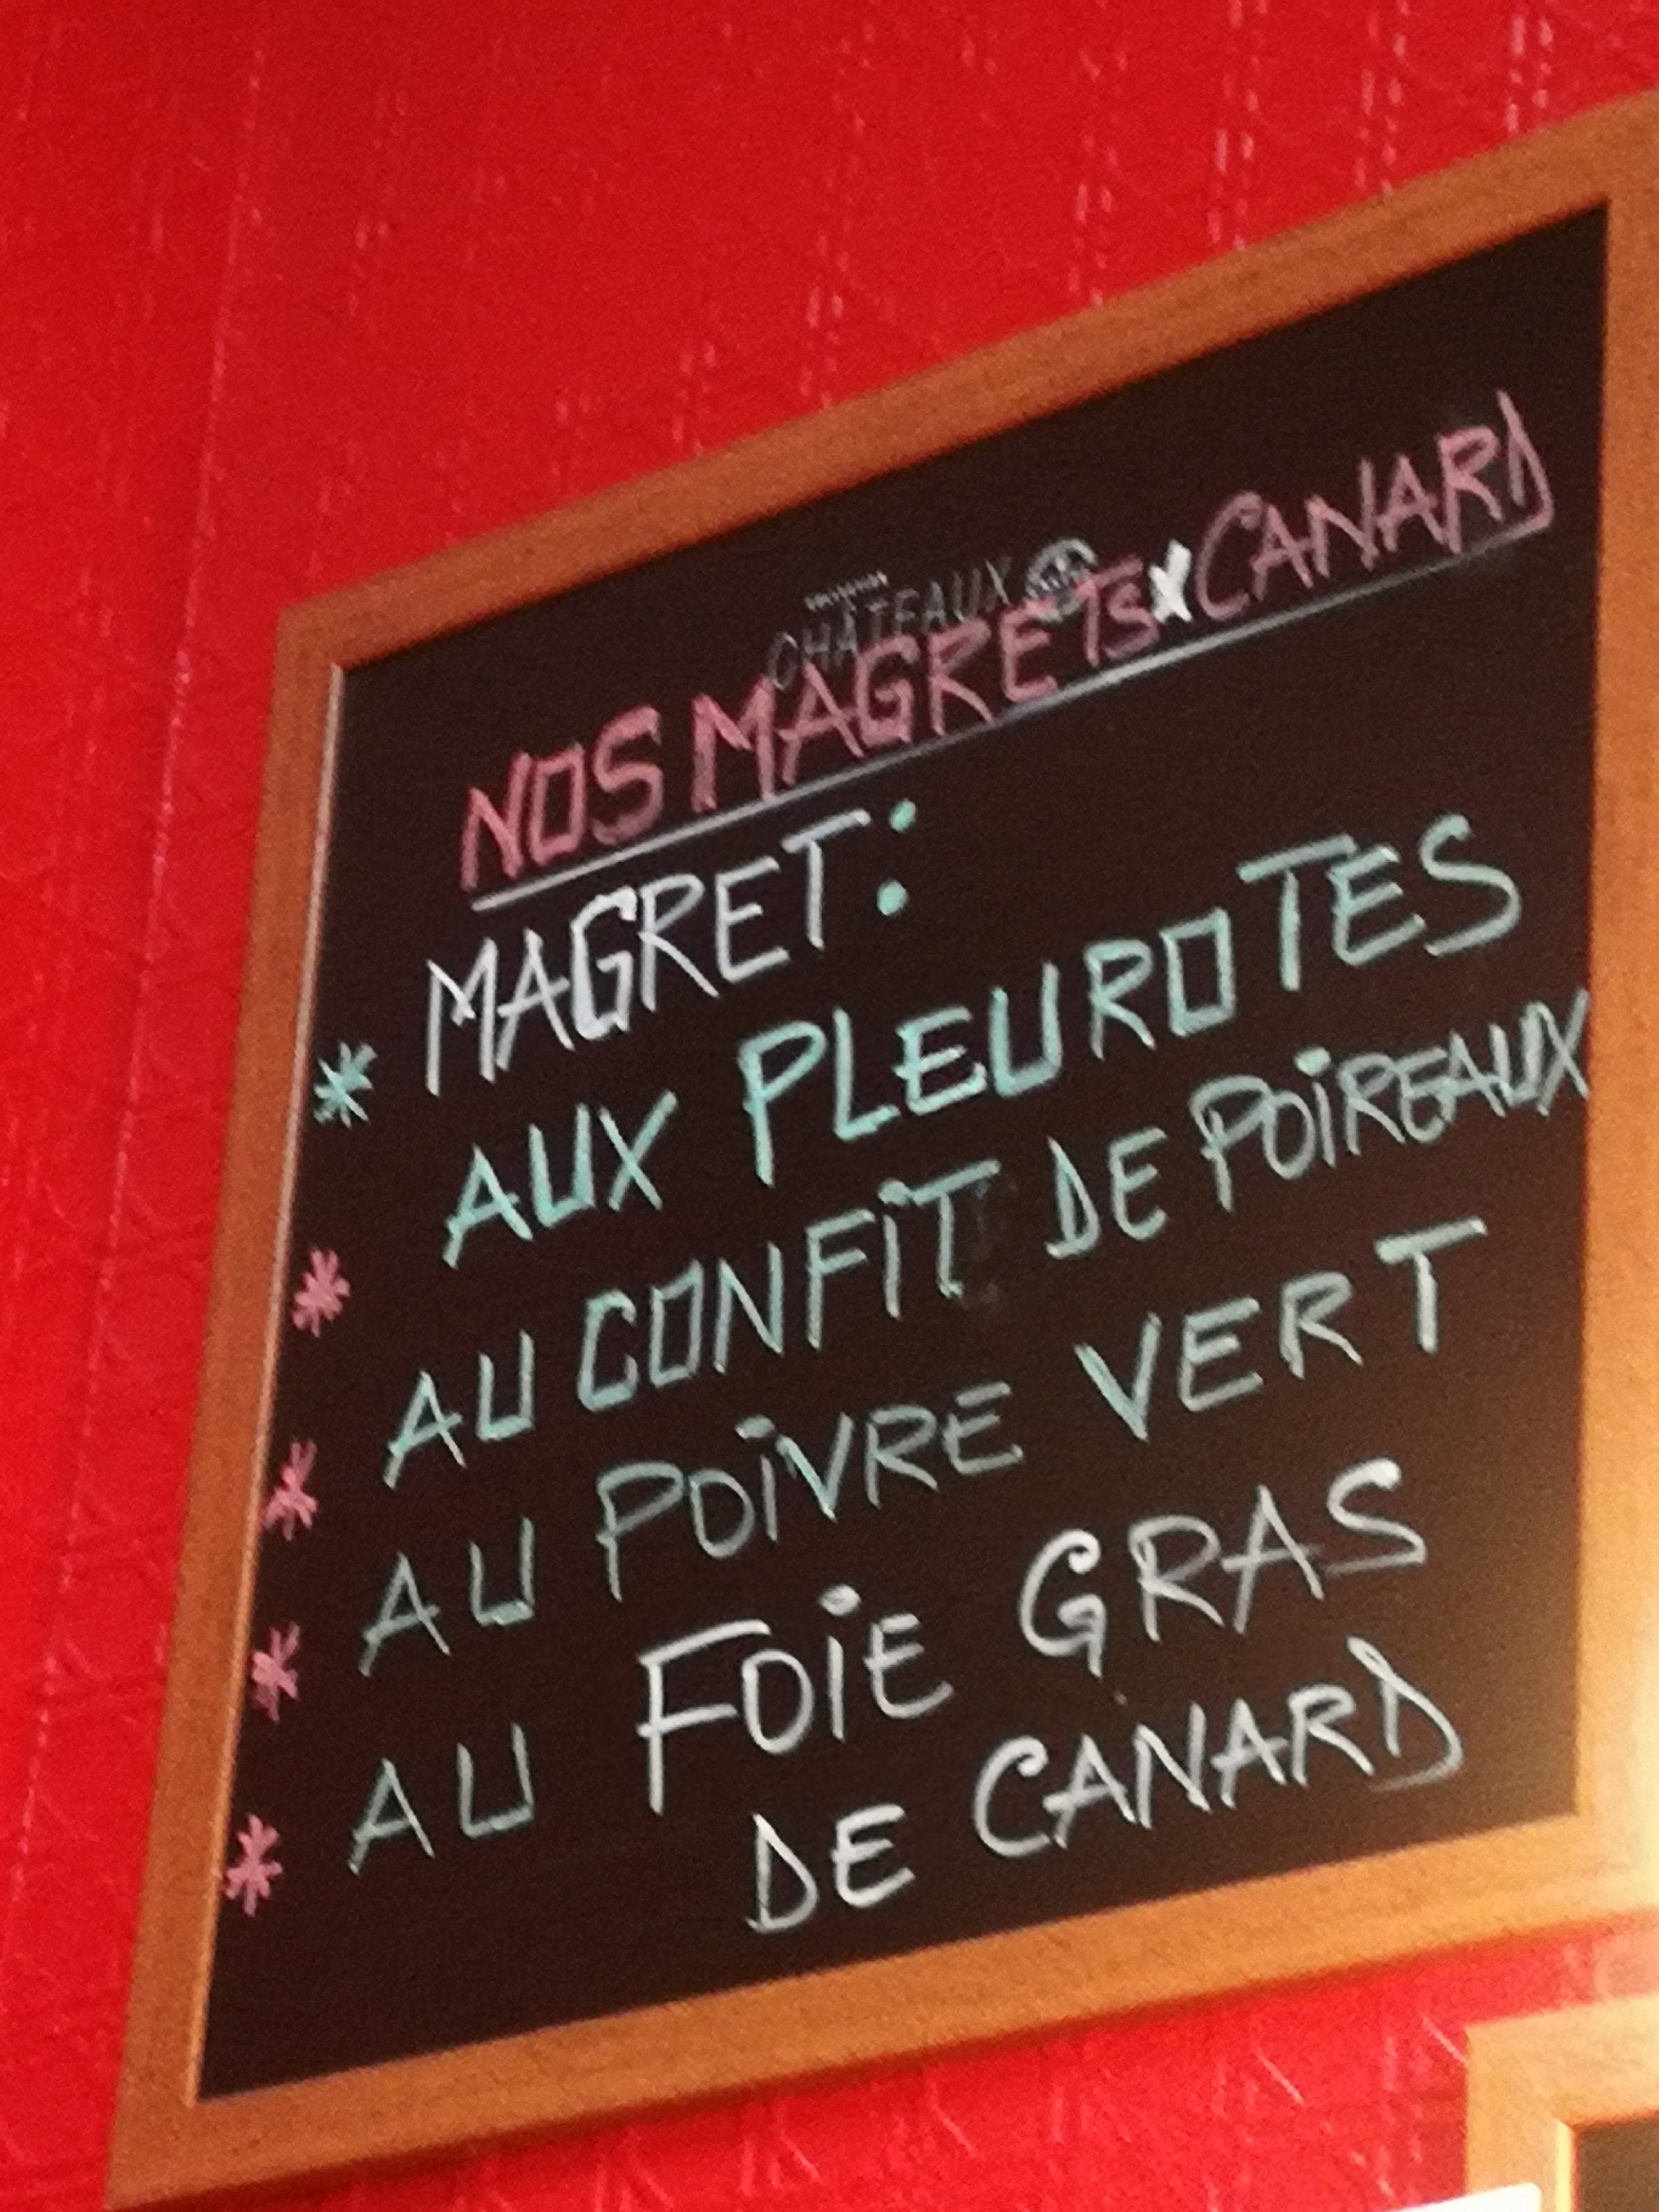 CHATEAUX
NOS MAGRETS x CANARD
* MAGRET:
* AUX PLEUROTES
* AU CONFIT DE POIREAUX
* AU POIVRE VERT
* AU FOIE GRAS
DE CANARD